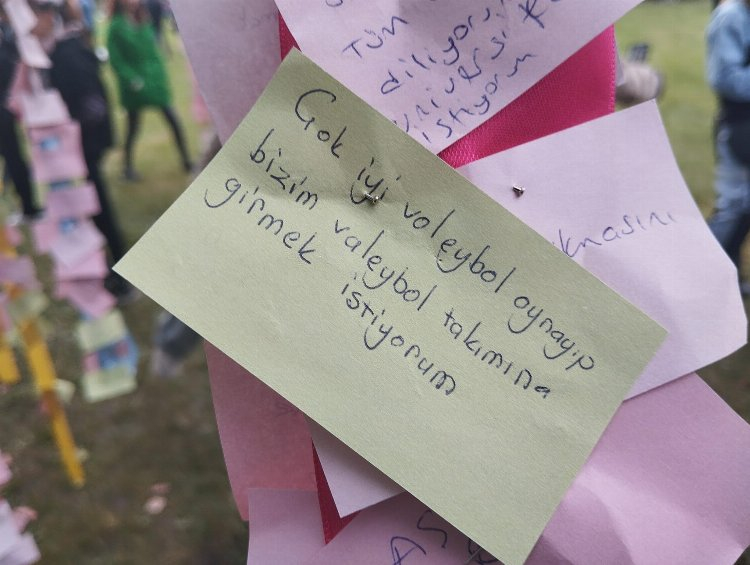 Tüm
diliyorum
istiyorum
Çok iyi voleybol oynayıp
bizim valeybol takımına
girmek istiyorum